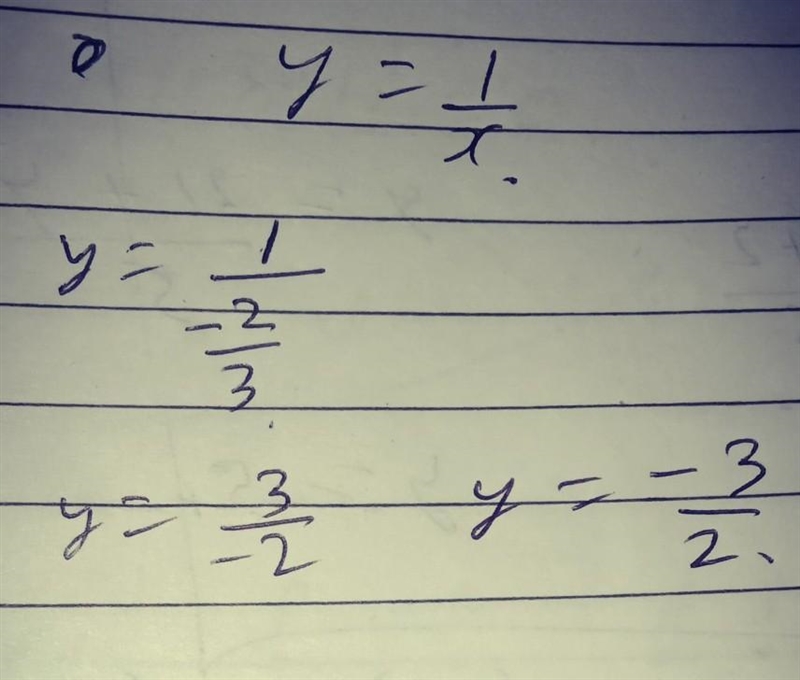 0 y = 1/x.
y = 1/(-2/3).
y = 3/-2 y = -3/2.